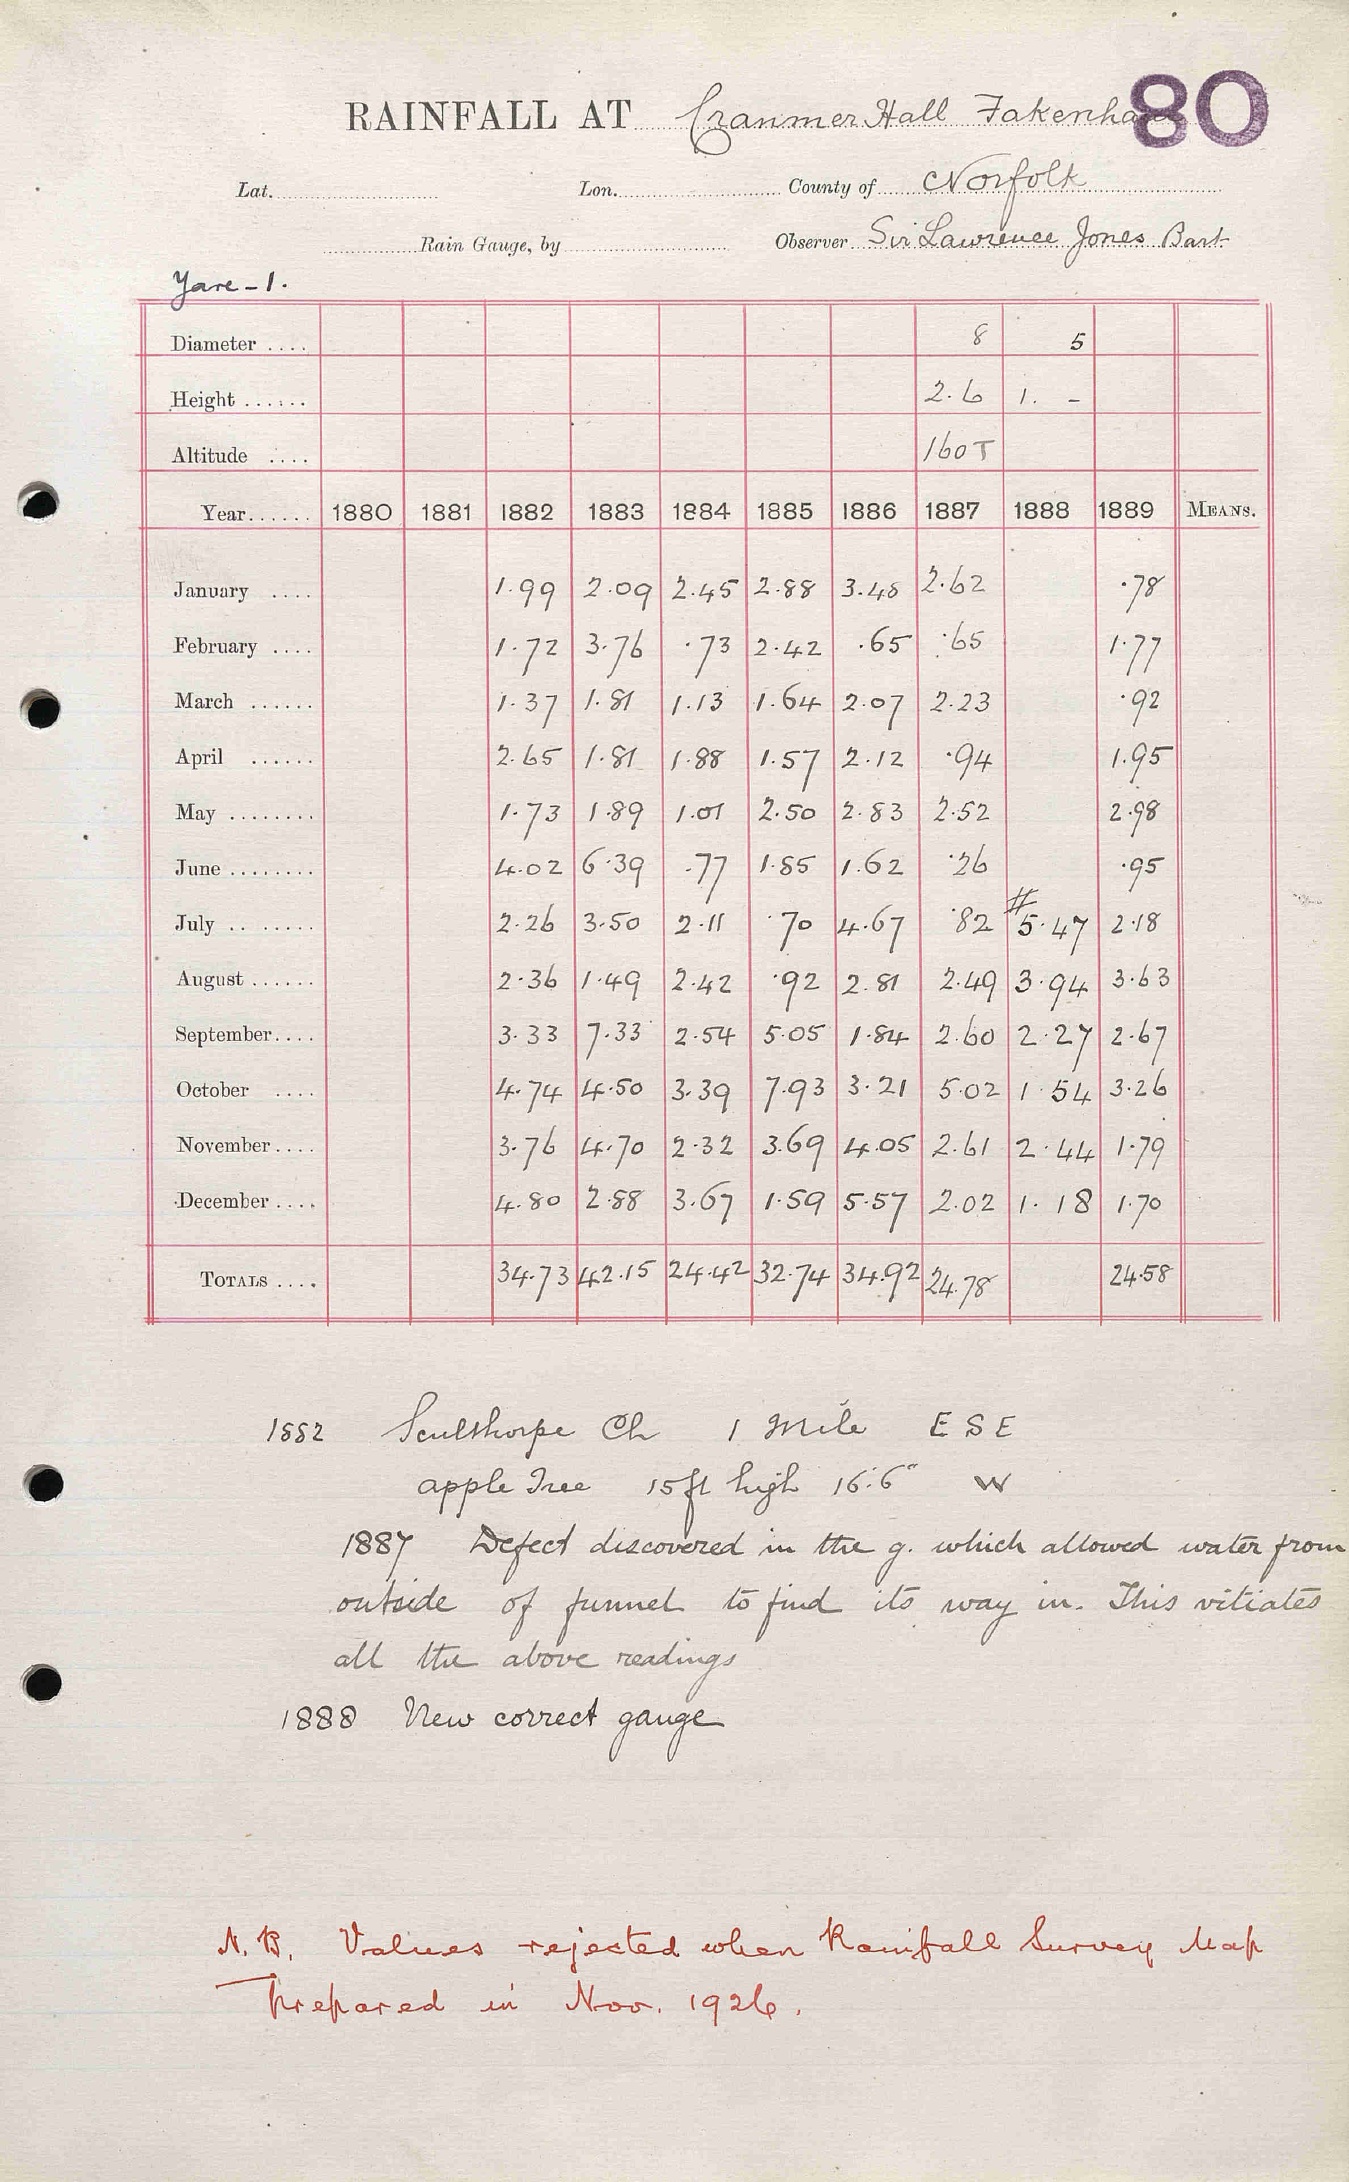 RAINFALL AT Cranmer Hall Fakenham 80
Lat. Lon. County of Norfolk
Rain Gauge, by Observer Sir Lawrence Jones Bart
Yare - 1.
Diameter .... 8 5
Height ...... 2.6 1. -
Altitude .... 160 T
Year...... 1880 1881 1882 1883 1884 1885 1886 1887 1888 1889 MEANS.
January .... 1.99 2.09 2.45 2.88 3.48 2.62 .78
February .... 1.72 3.76 .73 2.42 .65 .65 1.77
March ...... 1.37 1.81 1.13 1.64 2.07 2.23 .92
April ...... 2.65 1.81 1.88 1.57 2.12 .94 1.95
May ........ 1.73 1.89 1.01 2.50 2.83 2.52 2.98
June ........ 4.02 6.39 .77 1.85 1.62 .26 .95
July .. ...... 2.26 3.50 2.11 .70 4.67 .82 # 5.47 2.18
August ...... 2.36 1.49 2.42 .92 2.81 2.49 3.94 3.63
September.... 3.33 7.33 2.54 5.05 1.84 2.60 2.27 2.67
October .... 4.74 4.50 3.39 7.93 3.21 5.02 1.54 3.26
November.... 3.76 4.70 2.32 3.69 4.05 2.61 2.44 1.79
December .... 4.80 2.88 3.67 1.59 5.57 2.02 1.18 1.70
TOTALS .... 34.73 42.15 24.42 32.74 34.92 24.78 24.58
1882 Sculthorpe Ch 1 Mile E S E
apple Tree 15 ft high 16'.6" W
1887 Defect discovered in the g. which allowed water from
outside of funnel to find its way in. This vitiates
all the above readings
1888 New correct gauge
N.B. Values rejected when Rainfall Survey Map
prepared in Nov. 1926.